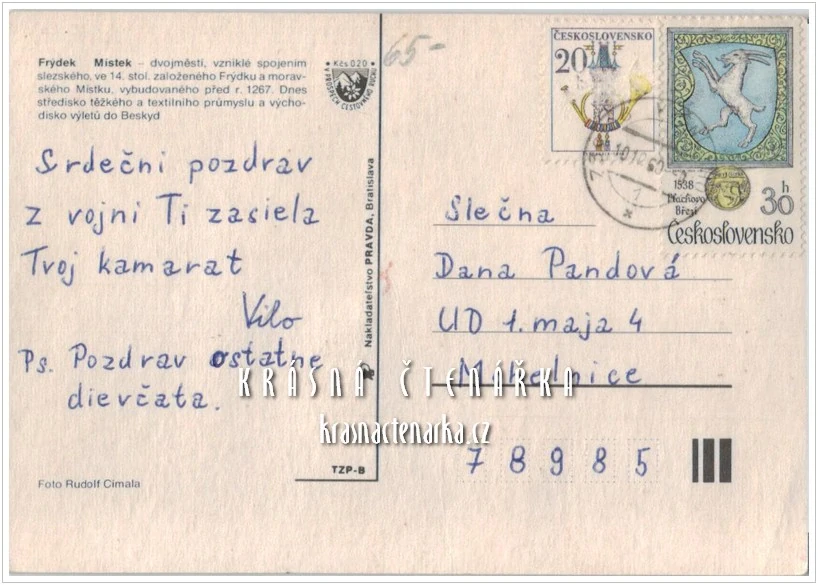 Frýdek Místek – dvojměstí, vzniklé spojením
slezského, ve 14. stol. založeného Frýdku a morav-
ského Místku, vybudovaného před r. 1267. Dnes
středisko těžkého a textilního průmyslu a výcho-
disko výletů do Beskyd
Kčs 0,20
V PROSPĚCH CESTOVNÉHO RUCHU
65-
ČESKOSLOVENSKO
20
1538
Vlachovo
Březí
30 h
Československo
Srdečni pozdrav
z vojni Ti zasiela
Tvoj kamarat
Vilo
Ps. Pozdrav ostatne
dievčata.
Nakladateľstvo PRAVDA, Bratislava
Slečna
Dana Pandová
UD 1. maja 4
Mohelnice
78985
KRÁSNÁ ČTENÁŘKA
krasnactenarka.cz
TZP-B
Foto Rudolf Cimala